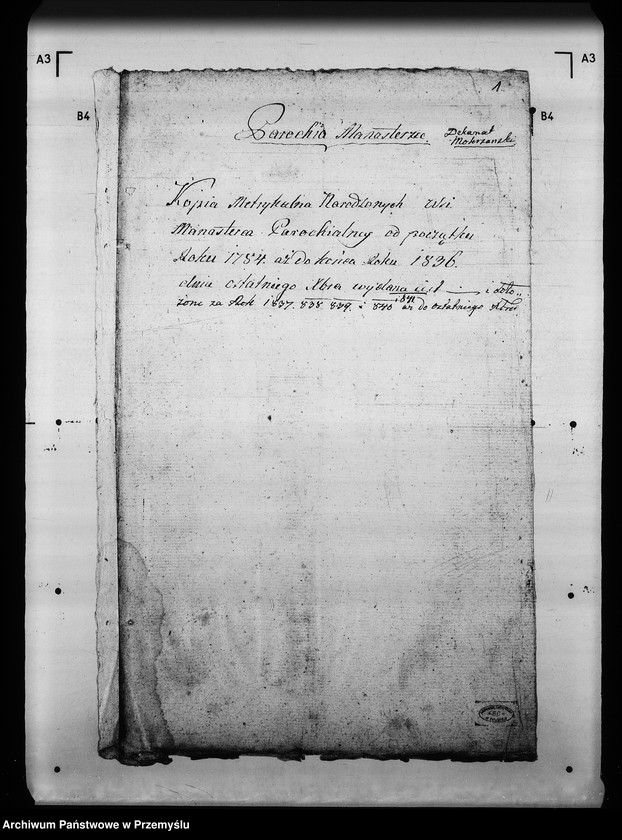 A3
A3
B4
B4
1
Parochia Manasterzec.
Dekanat
Mokrzanski
Kopia Metrykalna Narodzonych Wsi
Manasterca Parochialney od początku
Roku 1784 aż do końca Roku 1836.
dnia ostatniego Xbra wydana jest — i doło
żone za Rok 1837. 838. 839. i 840 841 aż do ostatniego Xbra
Archiwum Państwowe w Przemyślu